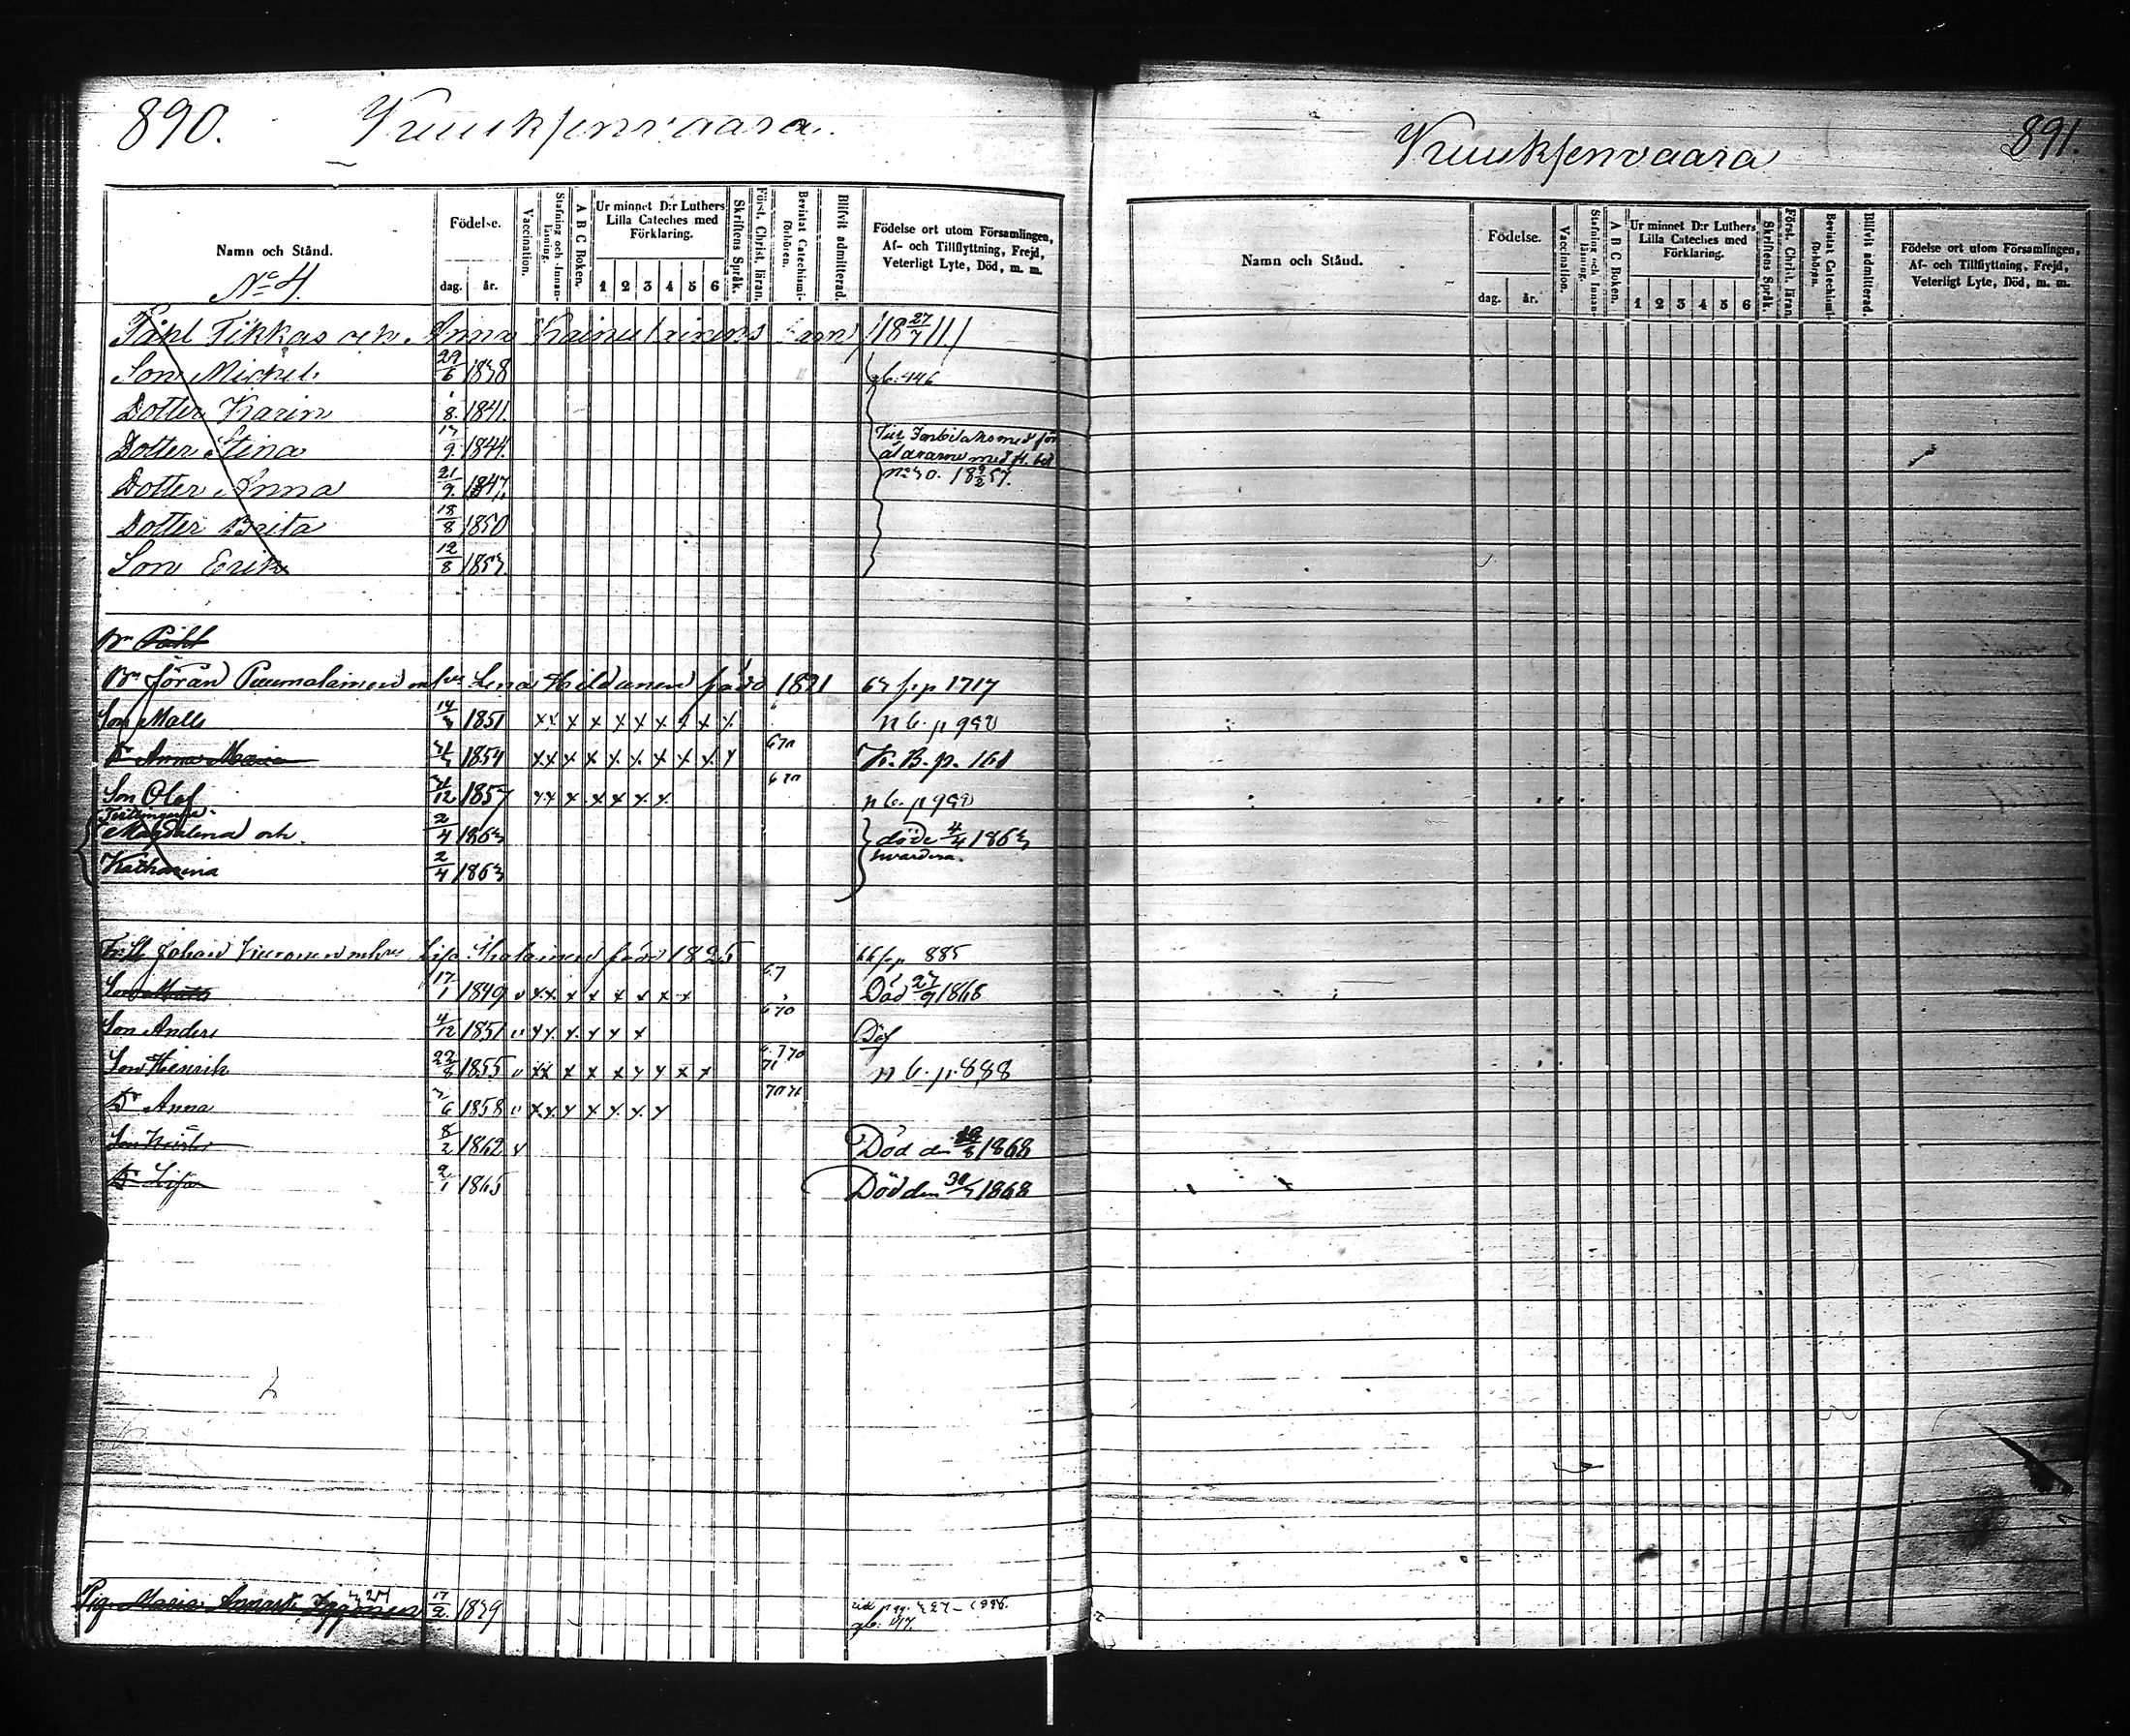 890. Kruuksenvaara.
Namn och Stånd.
Födelse.
dag. år.
Vaccination.
Stafning och Innanläsning.
A B C Boken.
Ur minnet D:r Luthers Lilla Cateches med Förklaring.
1 2 3 4 5 6
Skriftens Språk.
Först. Christ. läran.
Bevistat Catechismiförhören.
Blifvit admitterad.
Födelse ort utom Församlingen, Af- och Tillflyttning, Frejd, Veterligt Lyte, Död, m. m.
No 4.
Påhl Tikkas och Anna barn 18 27/7 11
Son Michel 29/6 1838 gb. 446
Dotter Karin 1/8. 1841.
Dotter Stina 17/9. 1844. med
Dotter Anna 21/9. 1847. No 30. 18 9/2 57.
Dotter Brita 18/8 1850
Son Erik 12/8 1853.
Bn Påhl
Bn Jöran Puumalainen Lena Hildunen född 1821 63 s.p 1717
Son Matts 14/3 1851 x x x x x x x x x x n b. p 990
Dr Anna Maria 1854 x x x x x x x x x x K. B. p. 161
Son Olof 1857 x x x x x x x n b. p 990
Tvillingarne
Magdalena och 2/4 1863 döde 4/4 1863
Katharina 2/4 1863 hvardera.
Johan född 1825 66 s.p 885
Son Matts 17/1 1849 v x x x x x x x x 67 Död 27/9 1868
Son Anders 4/12 1851 v x x x x x x 670 Döf
Son Henrik 22/8 1855 v x x x x x x x x x 71 n b. p. 888
Dr Anna 3/6 1858 v x x x x x x x 70 71
Son 8/2 1862 v Död den 1868
Dr Lisa 2/1 1865 Död den 1868
Pig. Maria 17/2. 1839
gb. 447.
Kruuksenvaara 891.
Namn och Stånd.
Födelse.
dag. år.
Vaccination.
Stafning och Innanläsning.
A B C Boken.
Ur minnet D:r Luthers Lilla Cateches med Förklaring.
1 2 3 4 5 6
Skriftens Språk.
Först. Christ. läran.
Bevistat Catechismiförhören.
Blifvit admitterad.
Födelse ort utom Församlingen, Af- och Tillflyttning, Frejd, Veterligt Lyte, Död, m. m.